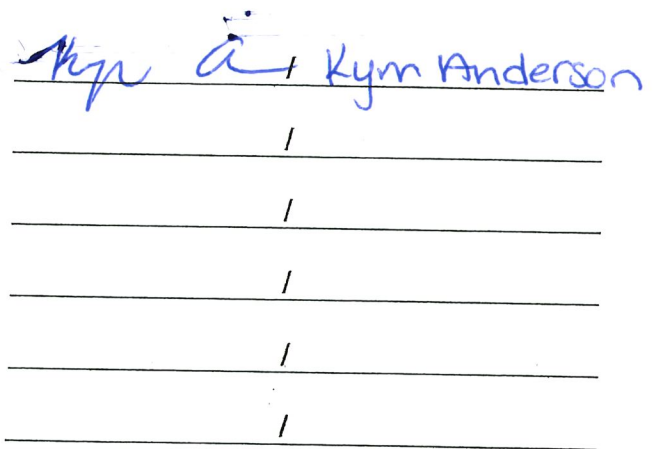 / Kym Anderson
/
/
/
/
/